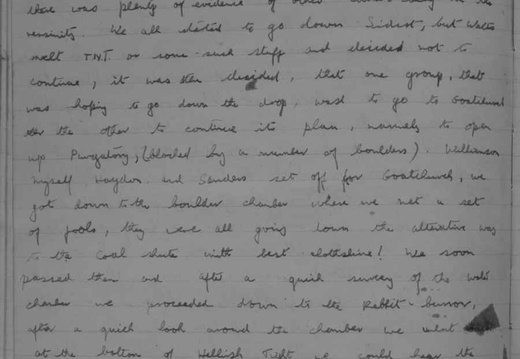 there was plenty of evidence of other
vicinity. We all started to go down Sidcot, but Watts
smelt T.N.T. or some such stuff and decided not to
continue, it was then decided, that one group, that
was hoping to go down the drop, was to go to Goatchurch
the other to continue its plan, namely to open
up Purgatory, (blocked by a number of boulders). Williamson
myself, Haydon and Sanders set off for Goatchurch, we
got down to the boulder chamber where we met a set
of fools, they were all going down the alternative way
to the Coal Shute with best clothshine! We soon
passed them and after a quick survey of the water
chamber we proceeded down to the Rabbit-burrow,
after a quick look around the chamber we went
at the bottom of Hellish Tight we could hear the